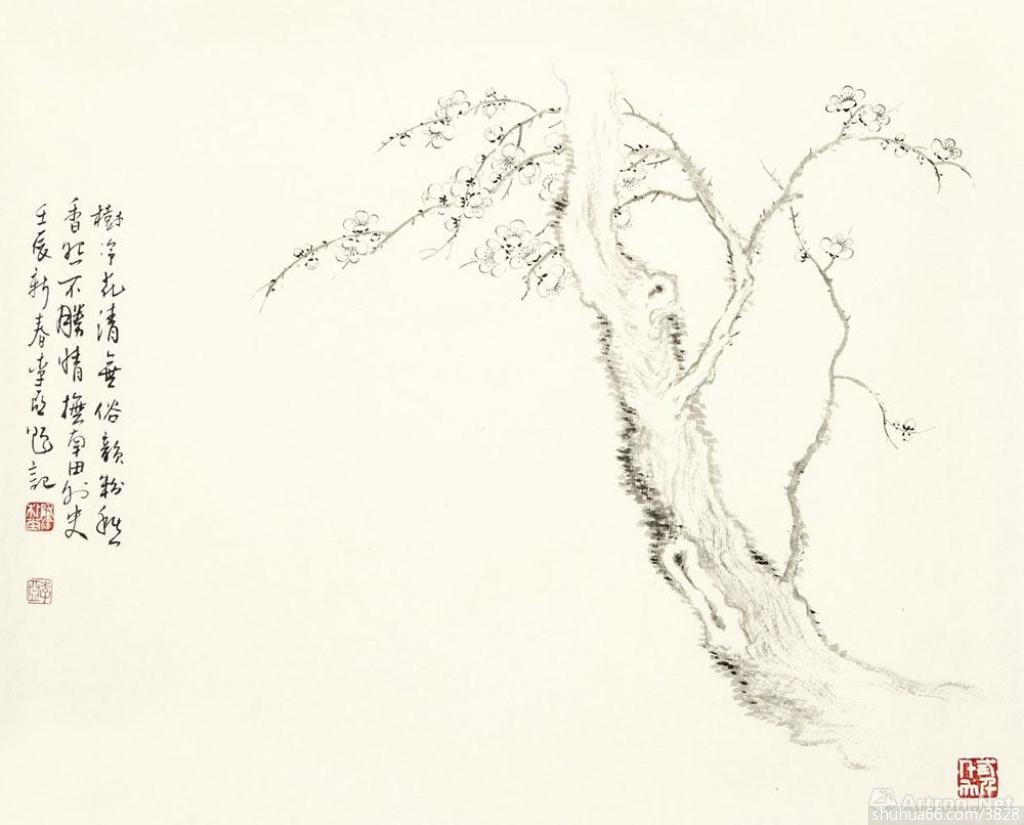 樹冷花清無俗韻粉愁
香怨不勝情撫南田外史
壬辰新春李亞記
Artron.Net
shuhua66.com/3828